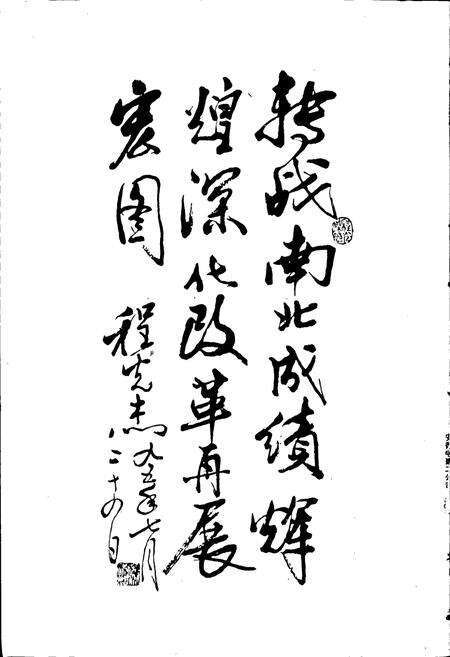 转战南北成绩辉
煌深化改革再展
宏图
程光杰
九五年七月
二十四日